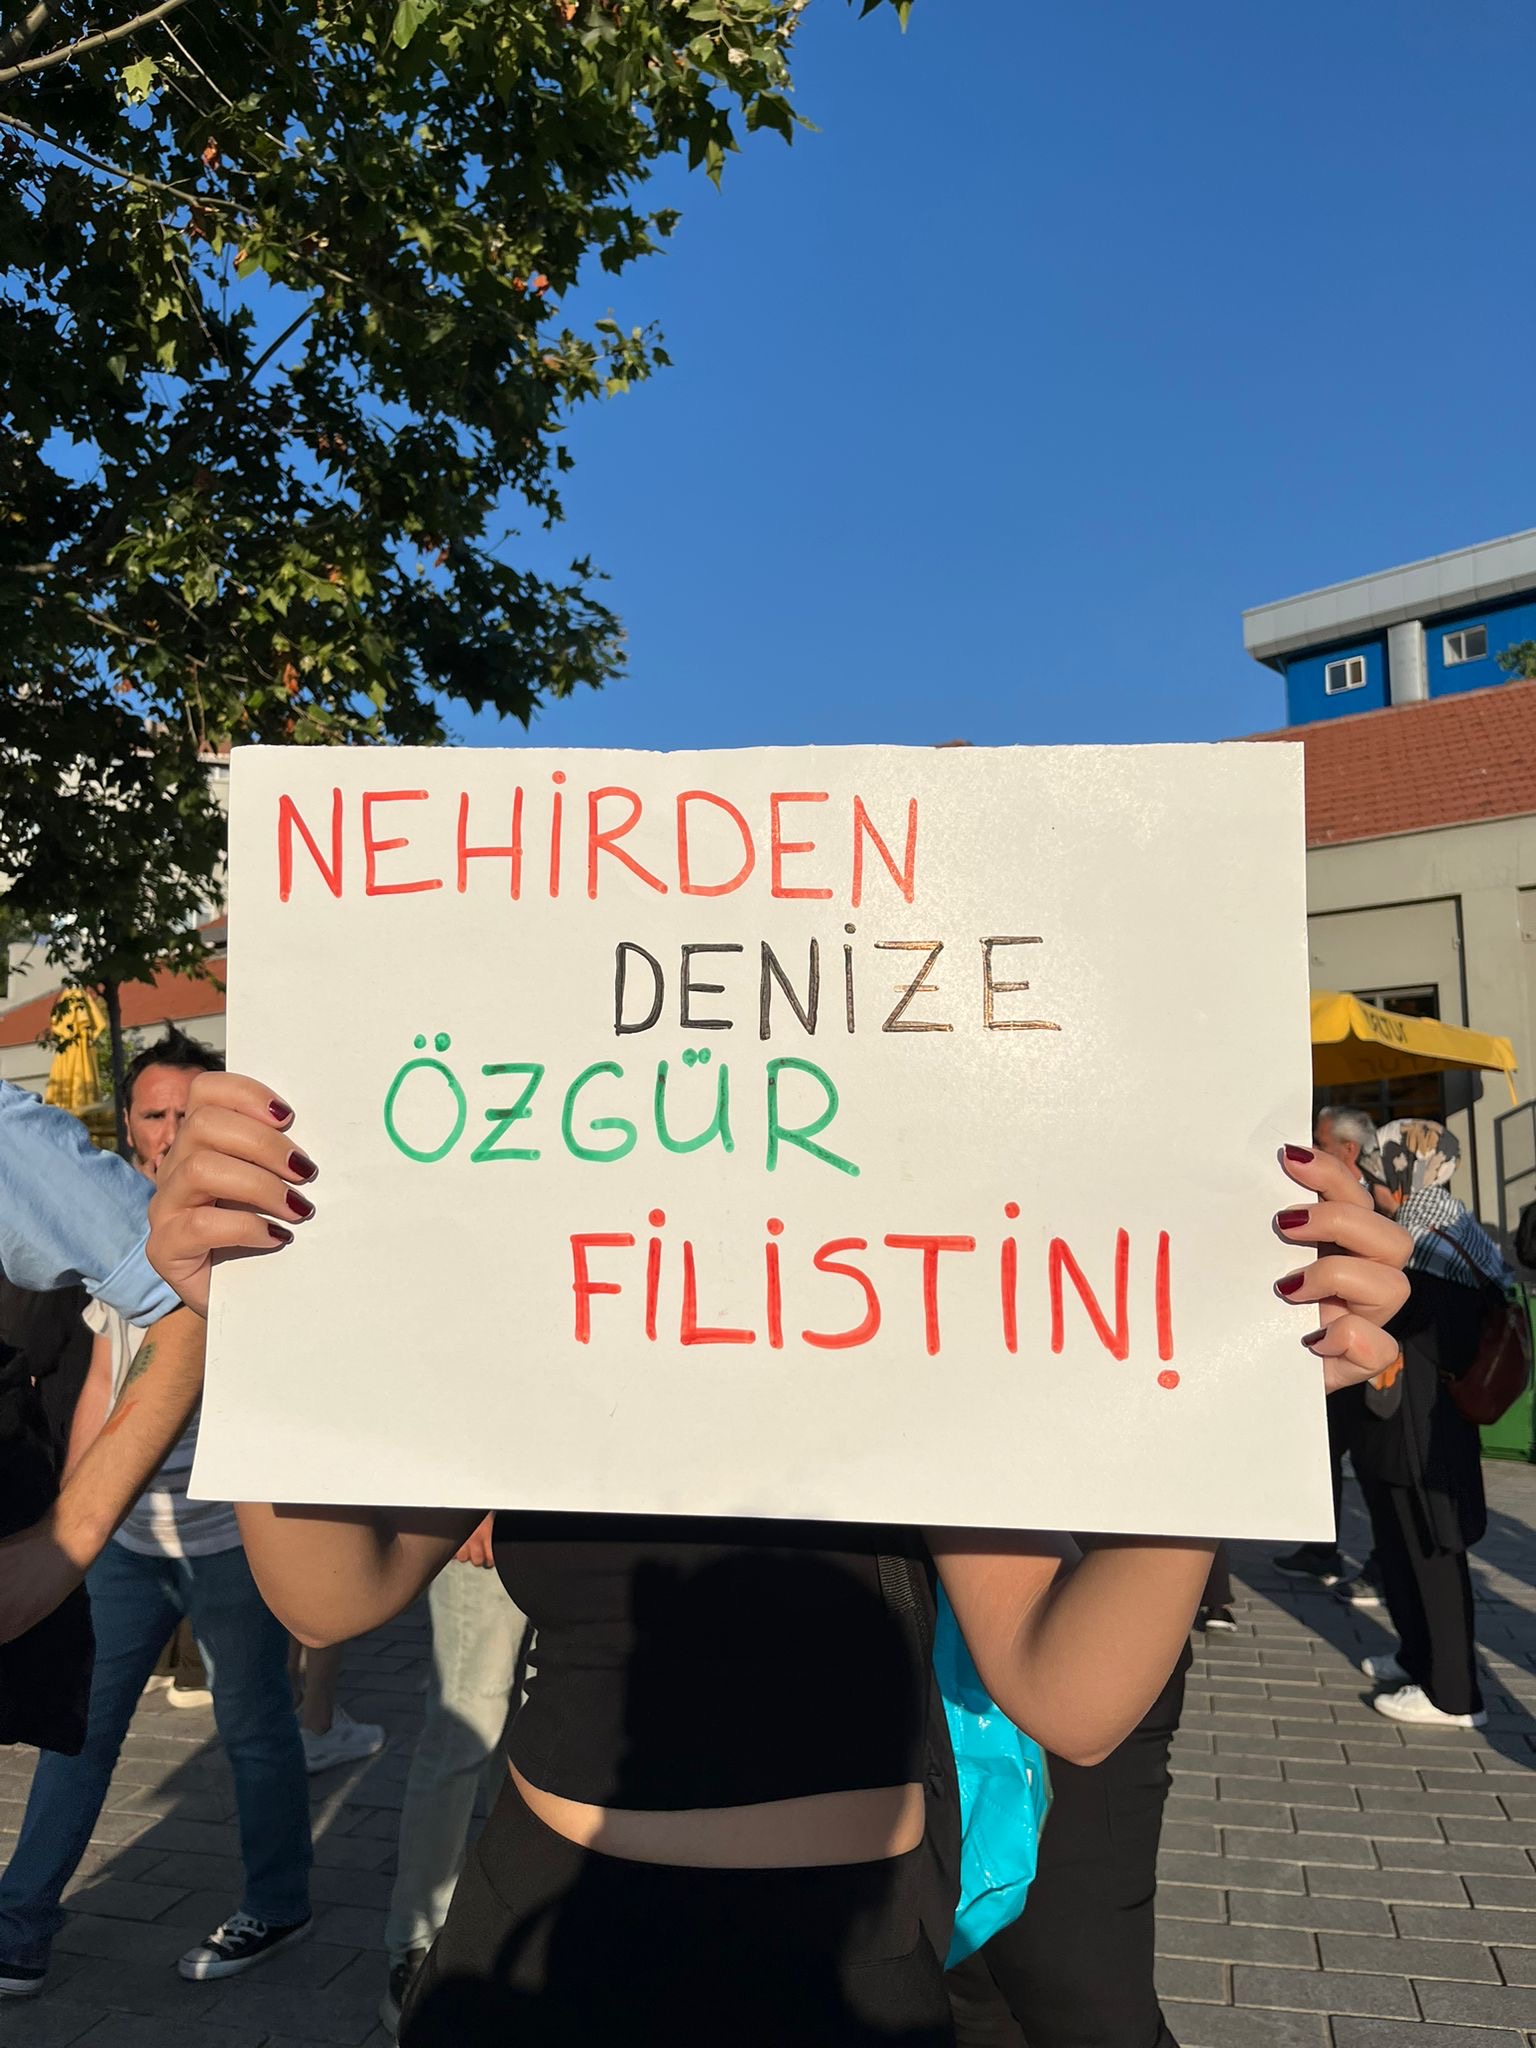 NEHİRDEN
DENİZE
ÖZGÜR
FİLİSTİN!